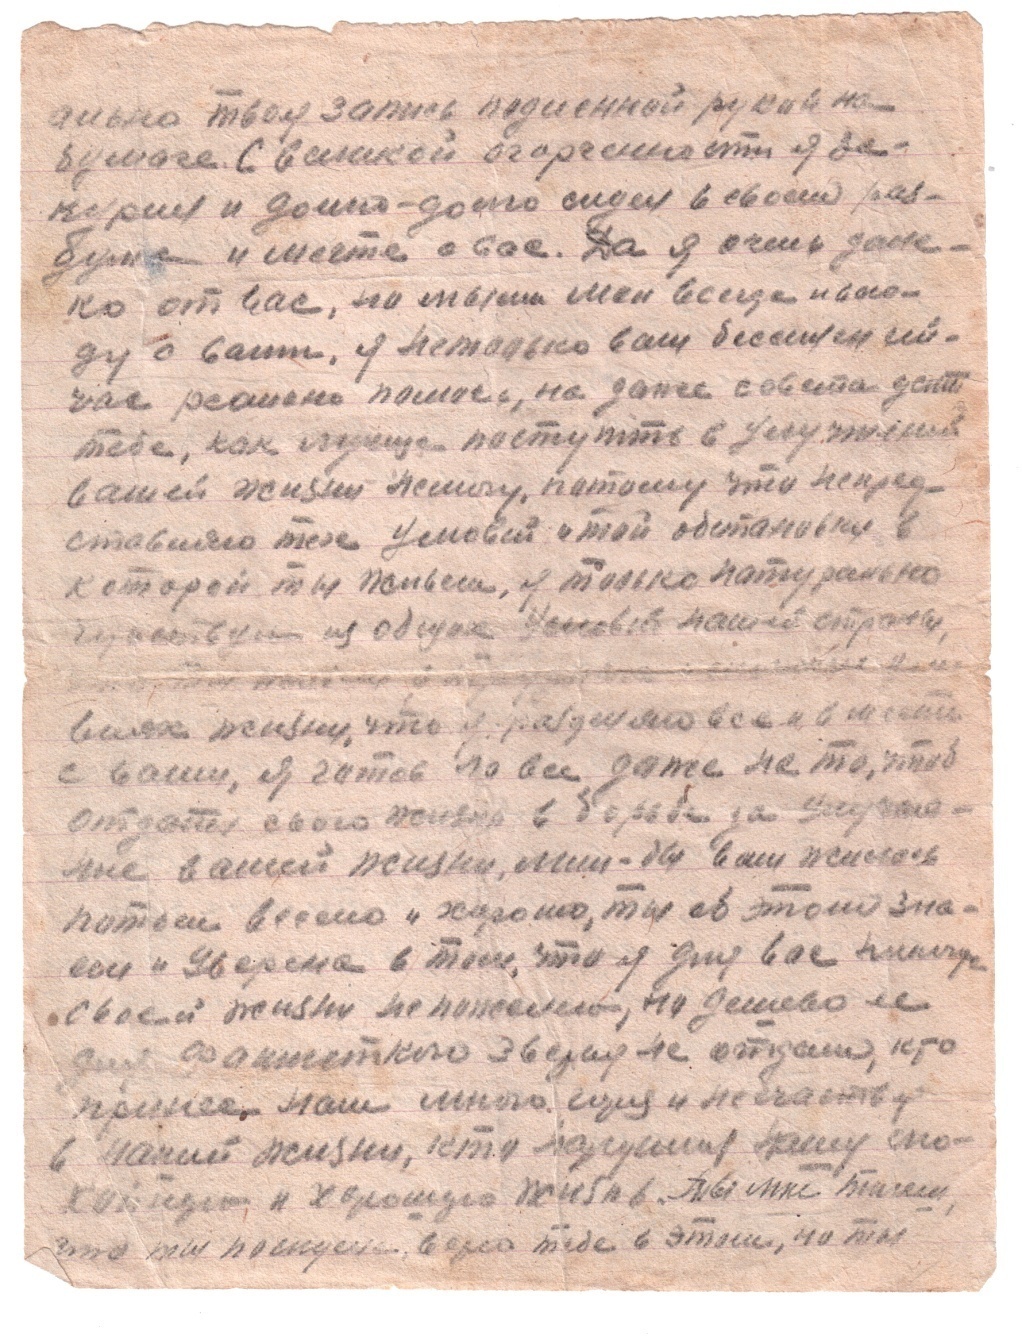 ально твоя запись подленной рукой на
бумаге. С великой огорченности я за-
курил и долго-долго сидел в своем раз-
думе и мечте о вас. Да я очень дале-
ко от вас, но мысли мои всегда и вою-
ду с вами, я нетолько вам бессилен сей-
час реально помоч, но даже совета дать
тебе, как лучше поступить в улучшении
вашей жизни немогу, потому что непред-
ставляю тех условий и той обстановки в
которой ты живеш, я только натурально
чувствую из общих условий нашей страны,
виях жизни, что я разделяю все и в месте
с вами, я готов на все даже на то, чтоб
отдать свою жизнь в борьбе за улучше-
ние вашей жизни, лиш-бы вам жилось
потом весело и хорошо, ты об этом зна-
еш и уверена в том, что я для вас никогда
своей жизни непожелею, но дешево ее
для фашисткого зверья не отдам, кто
принес нам много горя и несчастья
в нашей жизни, кто нарушил нашу спо-
койную и хорошую жизнь. Ты мне пишеш,
что ты поскучала, верю тебе в этом, но ты